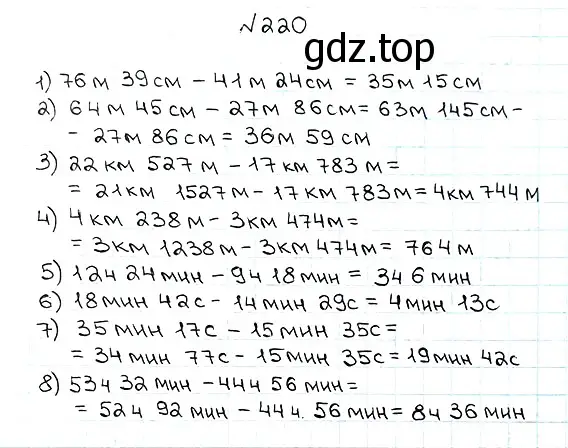 №220
gdz.top
1) 76м 39см - 41м 24см = 35м 15см
2) 64м 45см - 27м 86см = 63м 145см -
- 27м 86см = 36м 59см
3) 22км 527м - 17км 783м =
= 21км 1527м - 17км 783м = 4км 744м
4) 4км 238м - 3км 474м =
= 3км 1238м - 3км 474м = 764м
5) 12ч 24мин - 9ч 18мин = 3ч 6мин
6) 18мин 42с - 14мин 29с = 4мин 13с
7) 35мин 17с - 15мин 35с =
= 34мин 77с - 15мин 35с = 19мин 42с
8) 53ч 32мин - 44ч 56мин =
= 52ч 92мин - 44ч. 56мин = 8ч 36мин